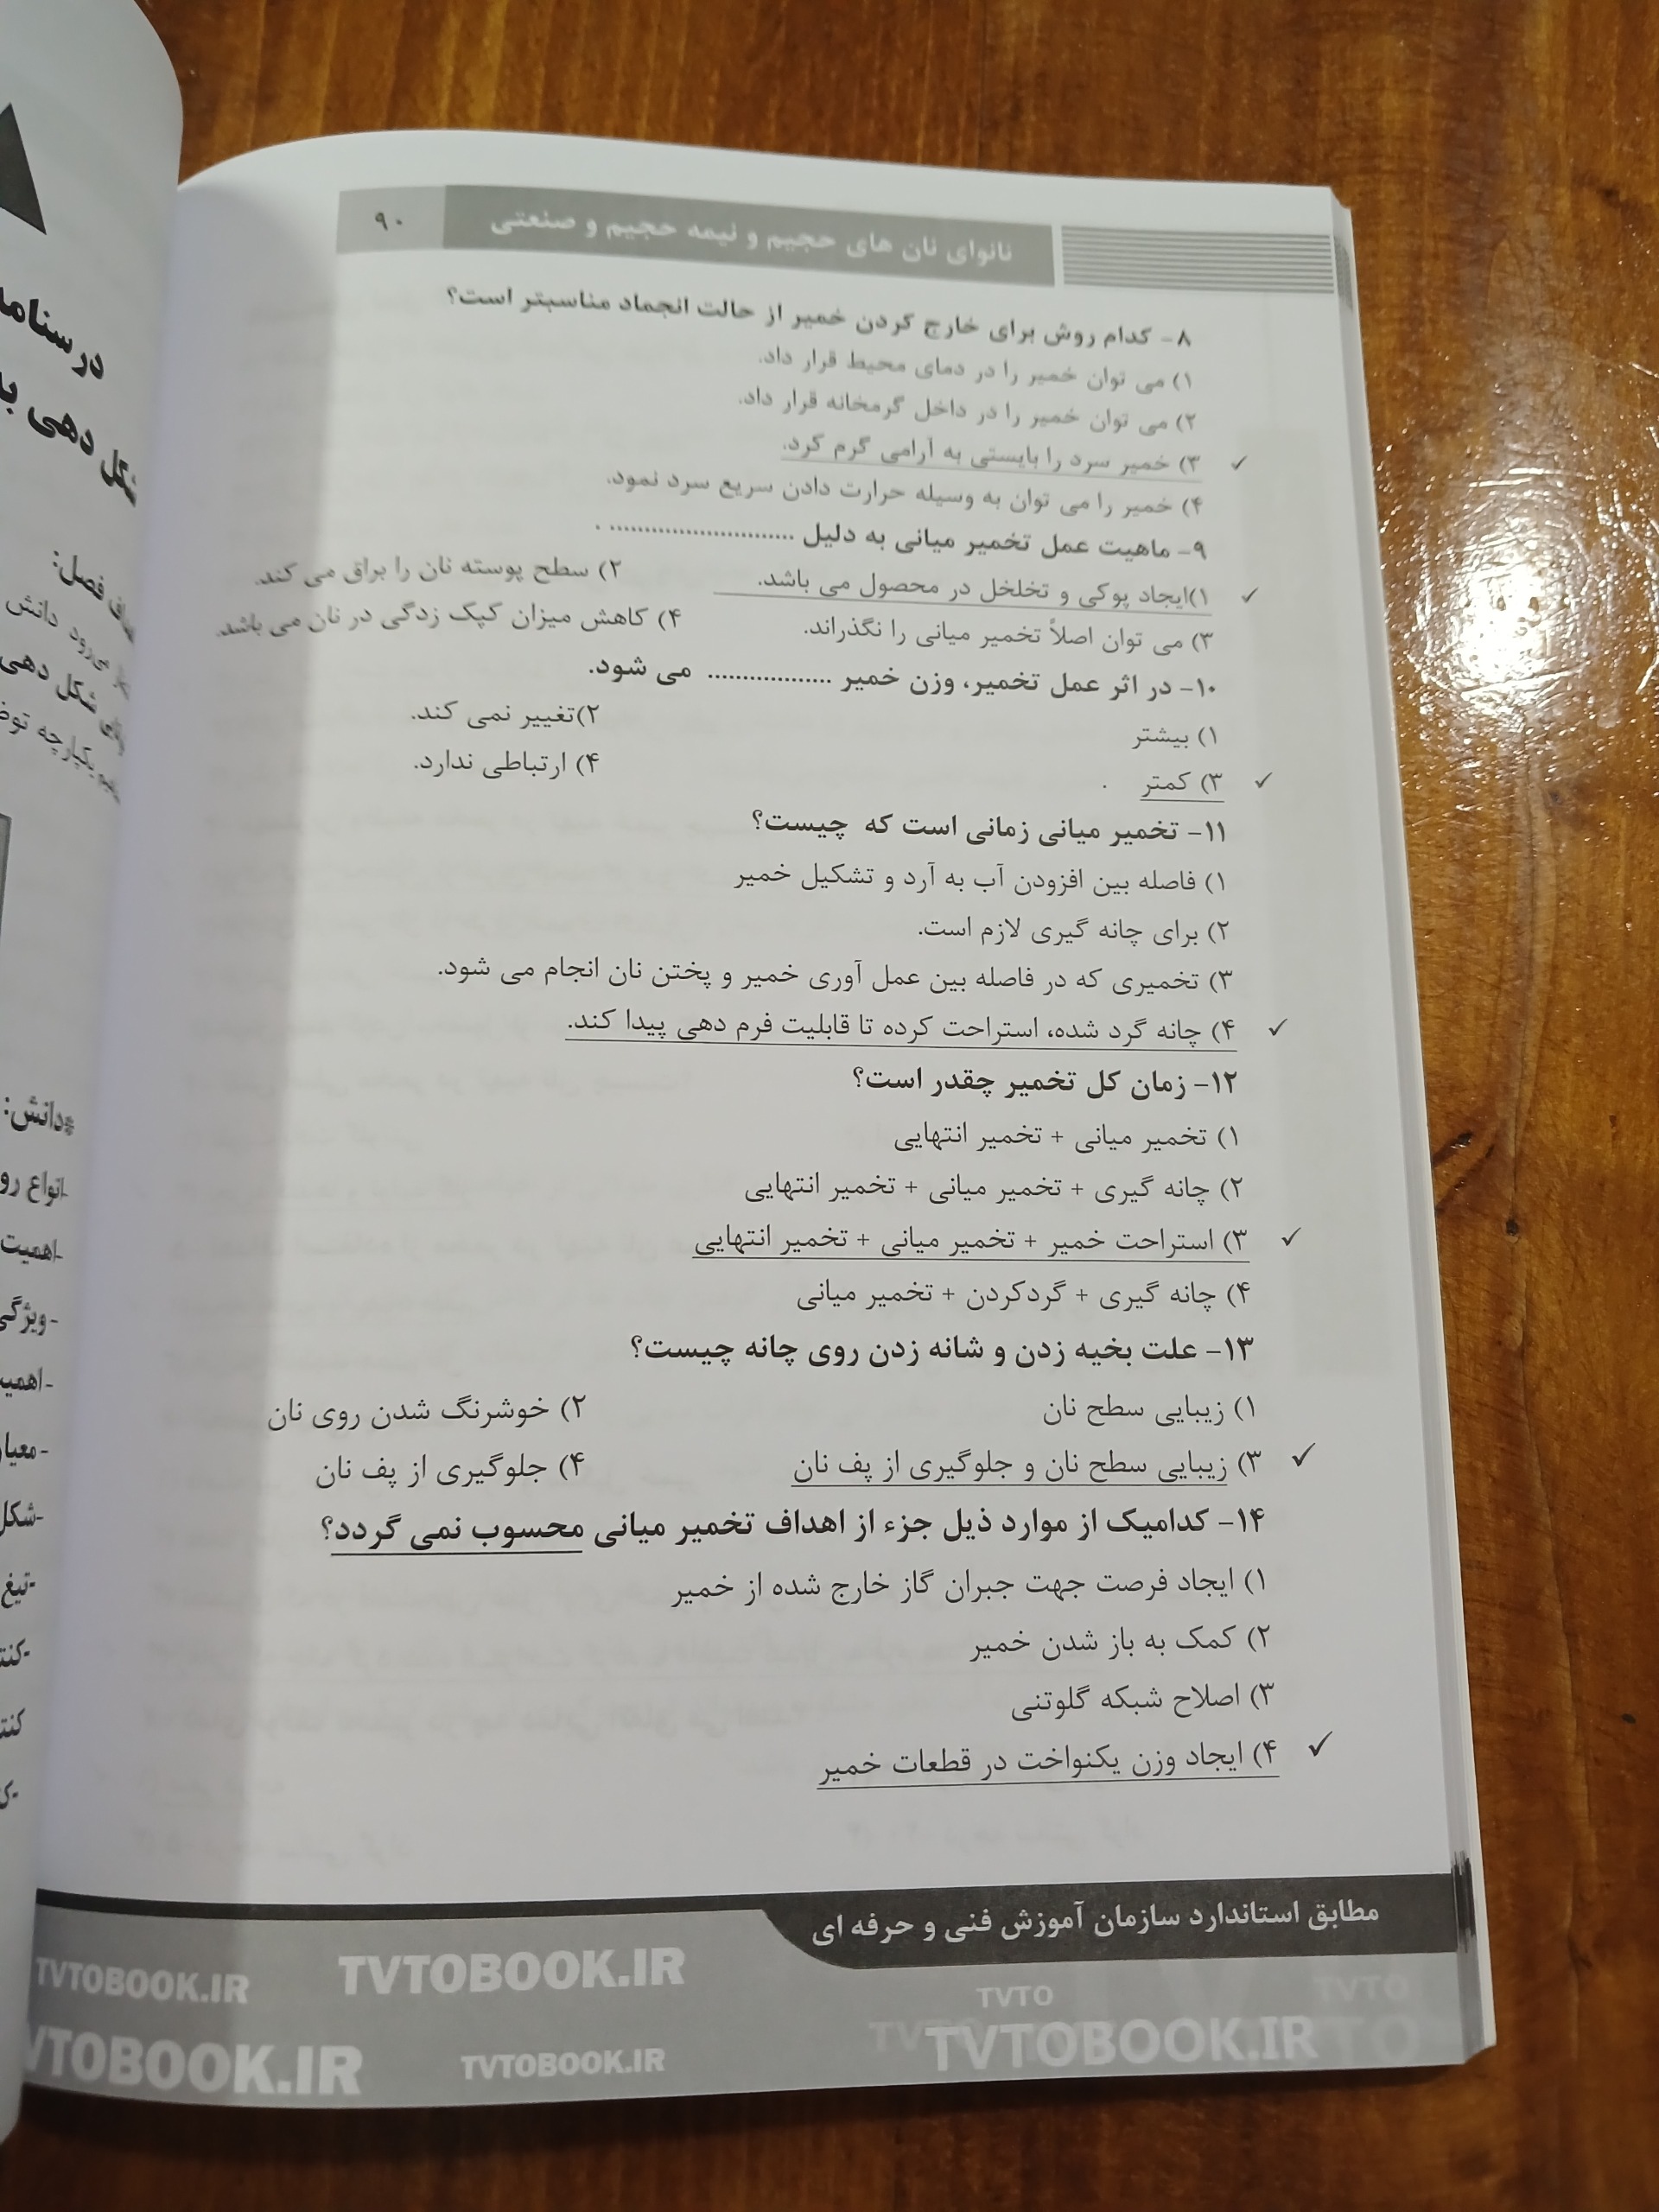 نانوای نان های حجیم و نیمه حجیم و صنعتی ۹۰
۸- کدام روش برای خارج کردن خمیر از حالت انجماد مناسبتر است؟
۱) می توان خمیر را در دمای محیط قرار داد.
۲) می توان خمیر را در داخل گرمخانه قرار داد.
✓ ۳) خمیر سرد را بایستی به آرامی گرم کرد.
۴) خمیر را می توان به وسیله حرارت دادن سریع سرد نمود.
۹- ماهیت عمل تخمیر میانی به دلیل .......................... .
✓ ۱)ایجاد پوکی و تخلخل در محصول می باشد. ۲) سطح پوسته نان را براق می کند.
۳) می توان اصلاً تخمیر میانی را نگذراند. ۴) کاهش میزان کپک زدگی در نان می باشد.
۱۰- در اثر عمل تخمیر، وزن خمیر .................. می شود.
۱) بیشتر ۲)تغییر نمی کند.
✓ ۳) کمتر . ۴) ارتباطی ندارد.
۱۱- تخمیر میانی زمانی است که چیست؟
۱) فاصله بین افزودن آب به آرد و تشکیل خمیر
۲) برای چانه گیری لازم است.
۳) تخمیری که در فاصله بین عمل آوری خمیر و پختن نان انجام می شود.
✓ ۴) چانه گرد شده، استراحت کرده تا قابلیت فرم دهی پیدا کند.
۱۲- زمان کل تخمیر چقدر است؟
۱) تخمیر میانی + تخمیر انتهایی
۲) چانه گیری + تخمیر میانی + تخمیر انتهایی
✓ ۳) استراحت خمیر + تخمیر میانی + تخمیر انتهایی
۴) چانه گیری + گردکردن + تخمیر میانی
۱۳- علت بخیه زدن و شانه زدن روی چانه چیست؟
۱) زیبایی سطح نان ۲) خوشرنگ شدن روی نان
✓ ۳) زیبایی سطح نان و جلوگیری از پف نان ۴) جلوگیری از پف نان
۱۴- کدامیک از موارد ذیل جزء از اهداف تخمیر میانی محسوب نمی گردد؟
۱) ایجاد فرصت جهت جبران گاز خارج شده از خمیر
۲) کمک به باز شدن خمیر
۳) اصلاح شبکه گلوتنی
✓ ۴) ایجاد وزن یکنواخت در قطعات خمیر
مطابق استاندارد سازمان آموزش فنی و حرفه ای
TVTOBOOK.IR TVTOBOOK.IR TVTO TVTO
TVTOBOOK.IR TVTOBOOK.IR TVTOBOOK.IR
دانش: